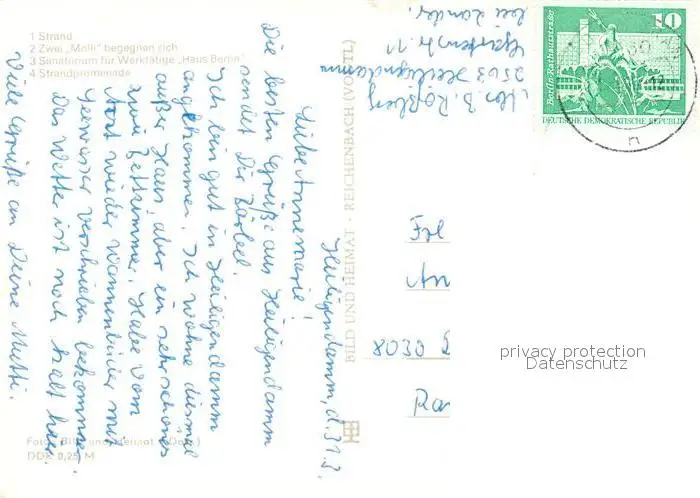 1 Strand
2 Zwei „Molli" begegnen sich
3 Sanatorium für Werktätige „Haus Berlin"
4 Strandpromenade
Heiligendamm, d. 31.3.
Liebe Annemarie!
Die besten Grüße aus Heiligendamm
sendet Dir Bärbel.
Ich bin gut in Heiligendamm
angekommen. Ich wohne diesmal
außer Haus, aber ein sehr schönes
zwei Bettzimmer. Habe vom
Arzt wieder Wannenbäder mit
verschrieben bekommen.
Das Wetter ist noch kalt hier.
Viele Grüße an Deine Mutti.
Abs. B. Roßberg
2563 Heiligendamm
Gartenstr. 11
bei
BILD UND HEIMAT · REICHENBACH (VOGTL)
Foto: Bild und Heimat
DDR 0,25 M
10
Berlin-Rathausstraße
DEUTSCHE DEMOKRATISCHE REPUBLIK
n
Frl
An
8030 D
Ra
privacy protection
Datenschutz